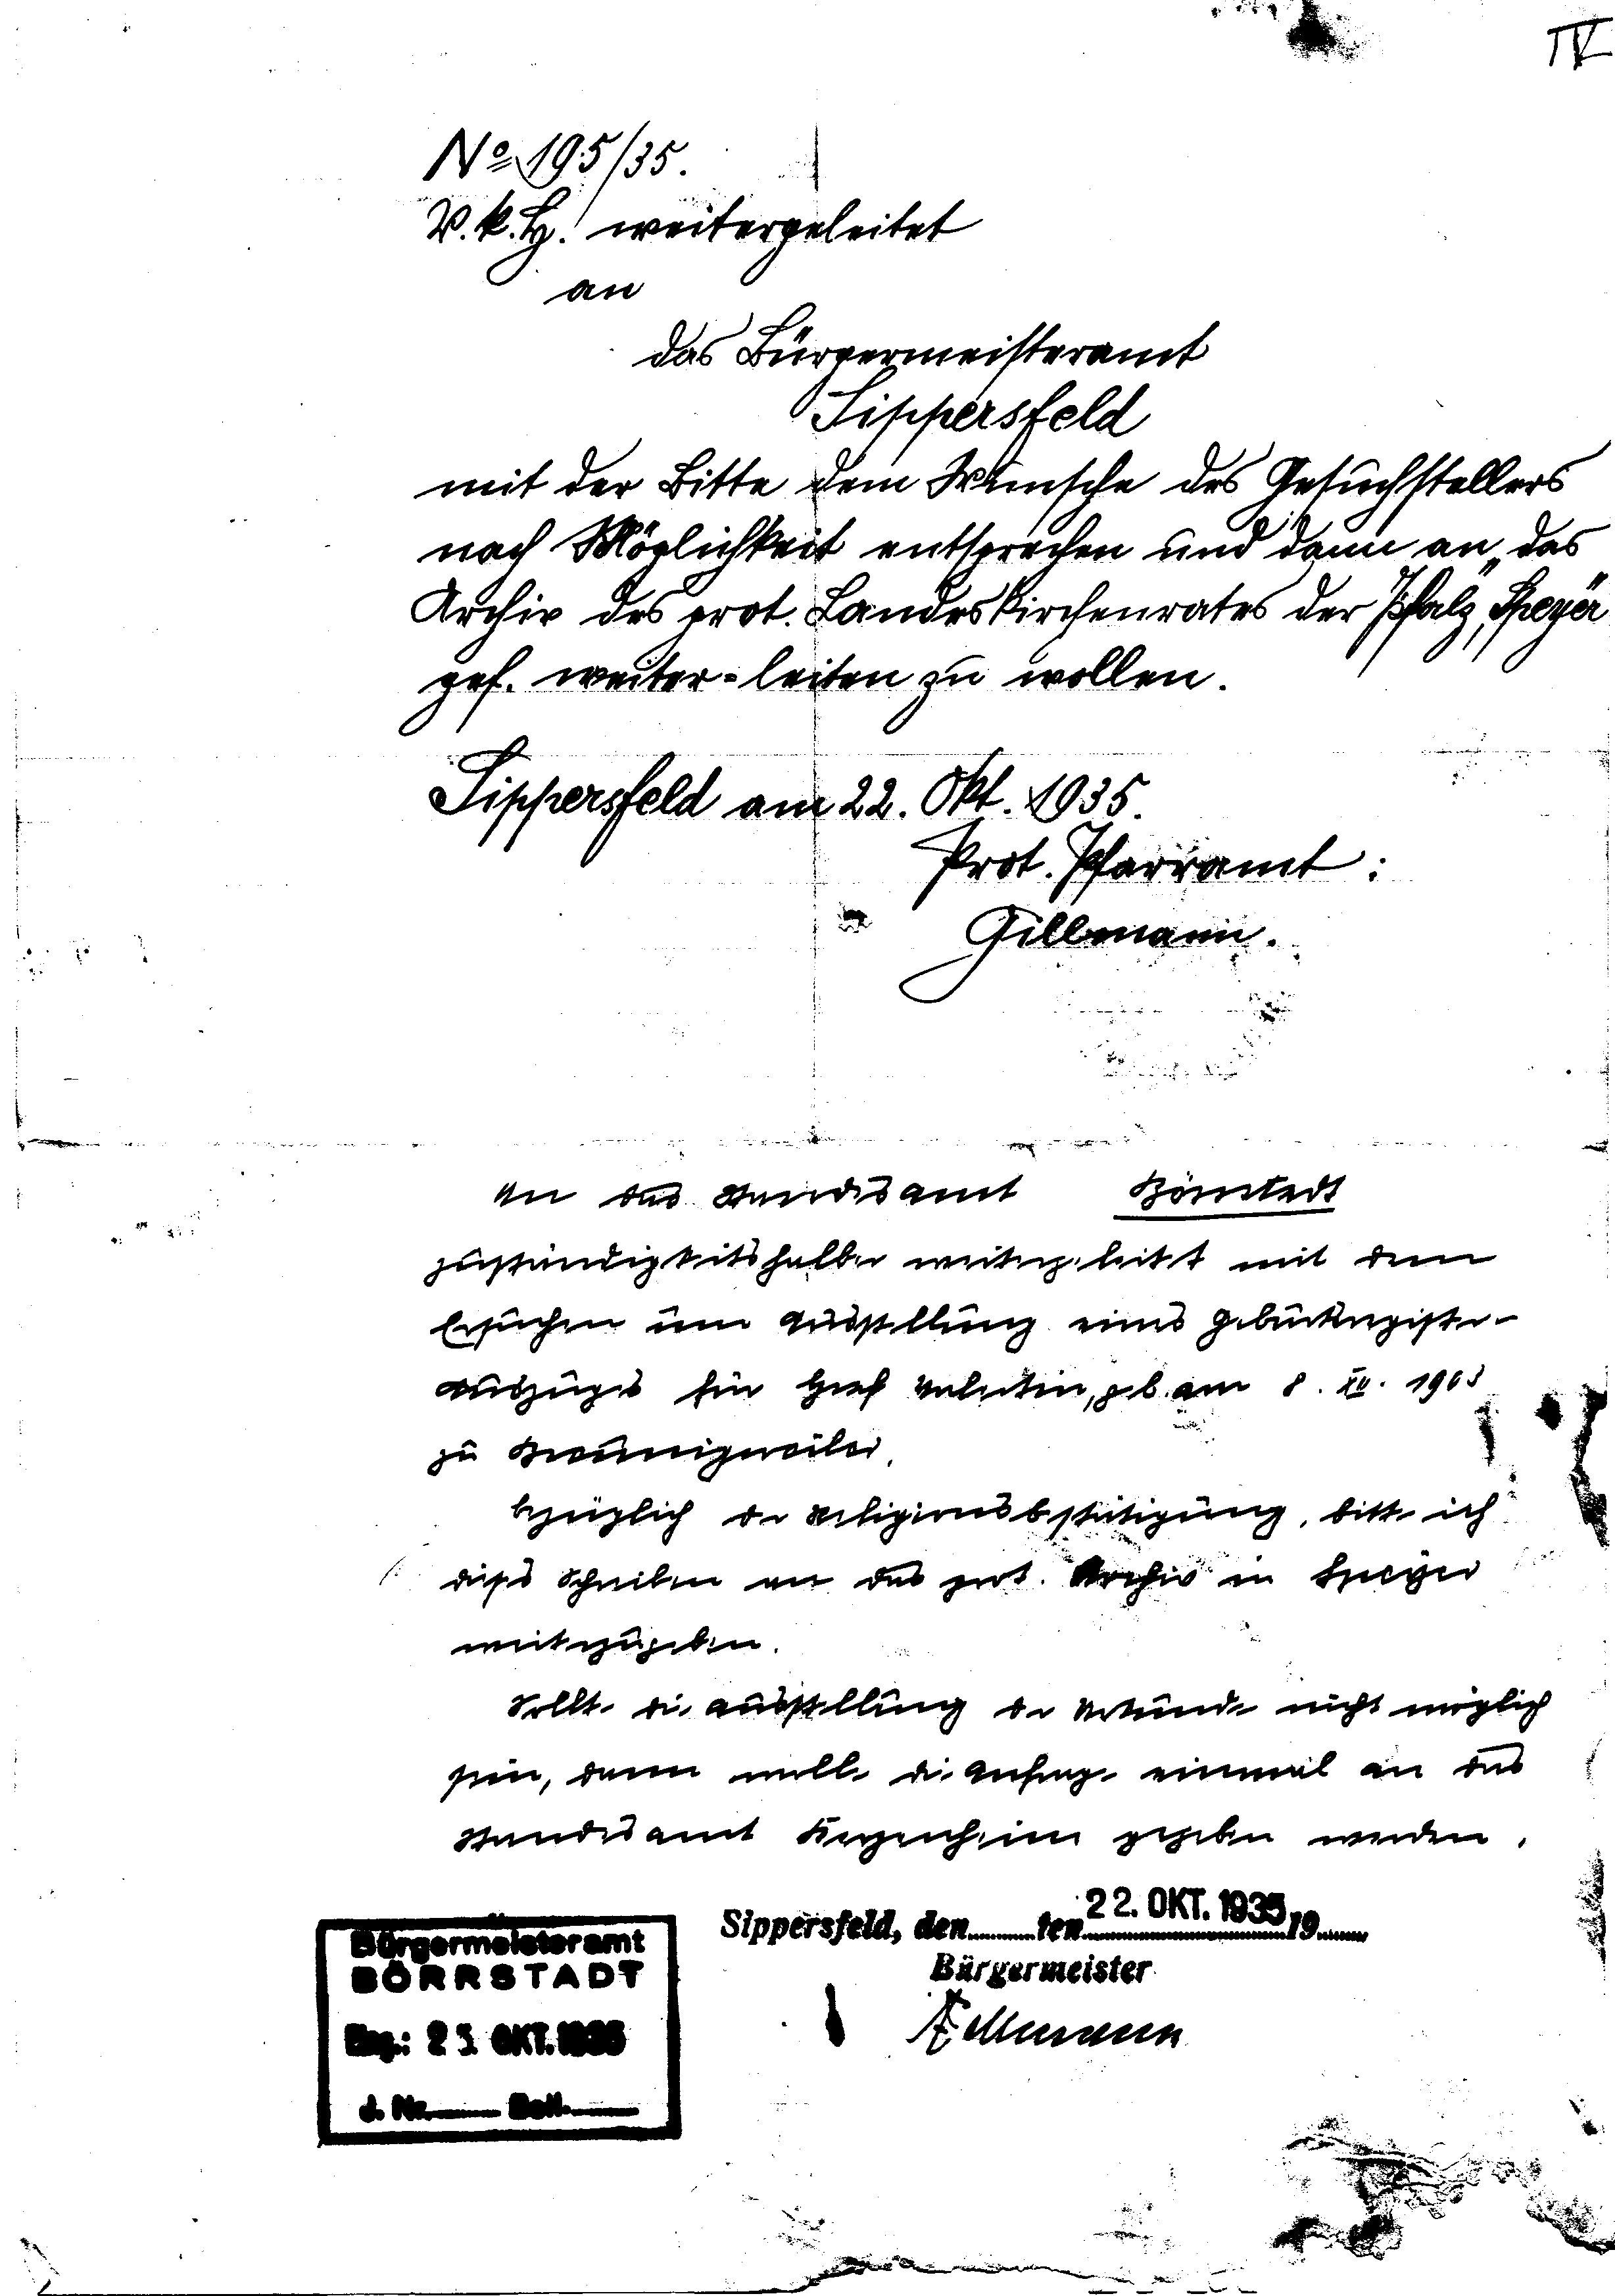 IV
No 195/35.
V.k.H. weitergeleitet
an
das Bürgermeisteramt
Sippersfeld
mit der Bitte dem Wunsche des Gesuchstellers
nach Möglichkeit entsprechen und dann an „das
Archiv des prot. Landeskirchenrates der Pfalz", Speyer
gef. weiter=leiten zu wollen.
Sippersfeld am 22. Okt. 1935.
Prot. Pfarramt:
Gillmann.
An das Standesamt Börrstadt
zuständigkeitshalber weitergeleitet mit dem
Ersuchen um Ausstellung eines Geburtsregister-
Auszuges für Graf Valentin, geb. am 8. XII.
zu Breunigweiler.
Bezüglich der Religionsbestätigung, bitte ich
dieses Schreiben an das prot. Archiv in Speyer
weiterzugeben.
Sollte die Ausstellung der Urkunde nicht möglich
sein, dann wolle die Anfrage einmal an das
Standesamt Kerzenheim gegeben werden.
Sippersfeld, den ten 22. OKT. 1935 19
Bürgermeister
Bürgermeisteramt
BÖRRSTADT
Eing.: 23. OKT. 1935
J. Nr. Beil.